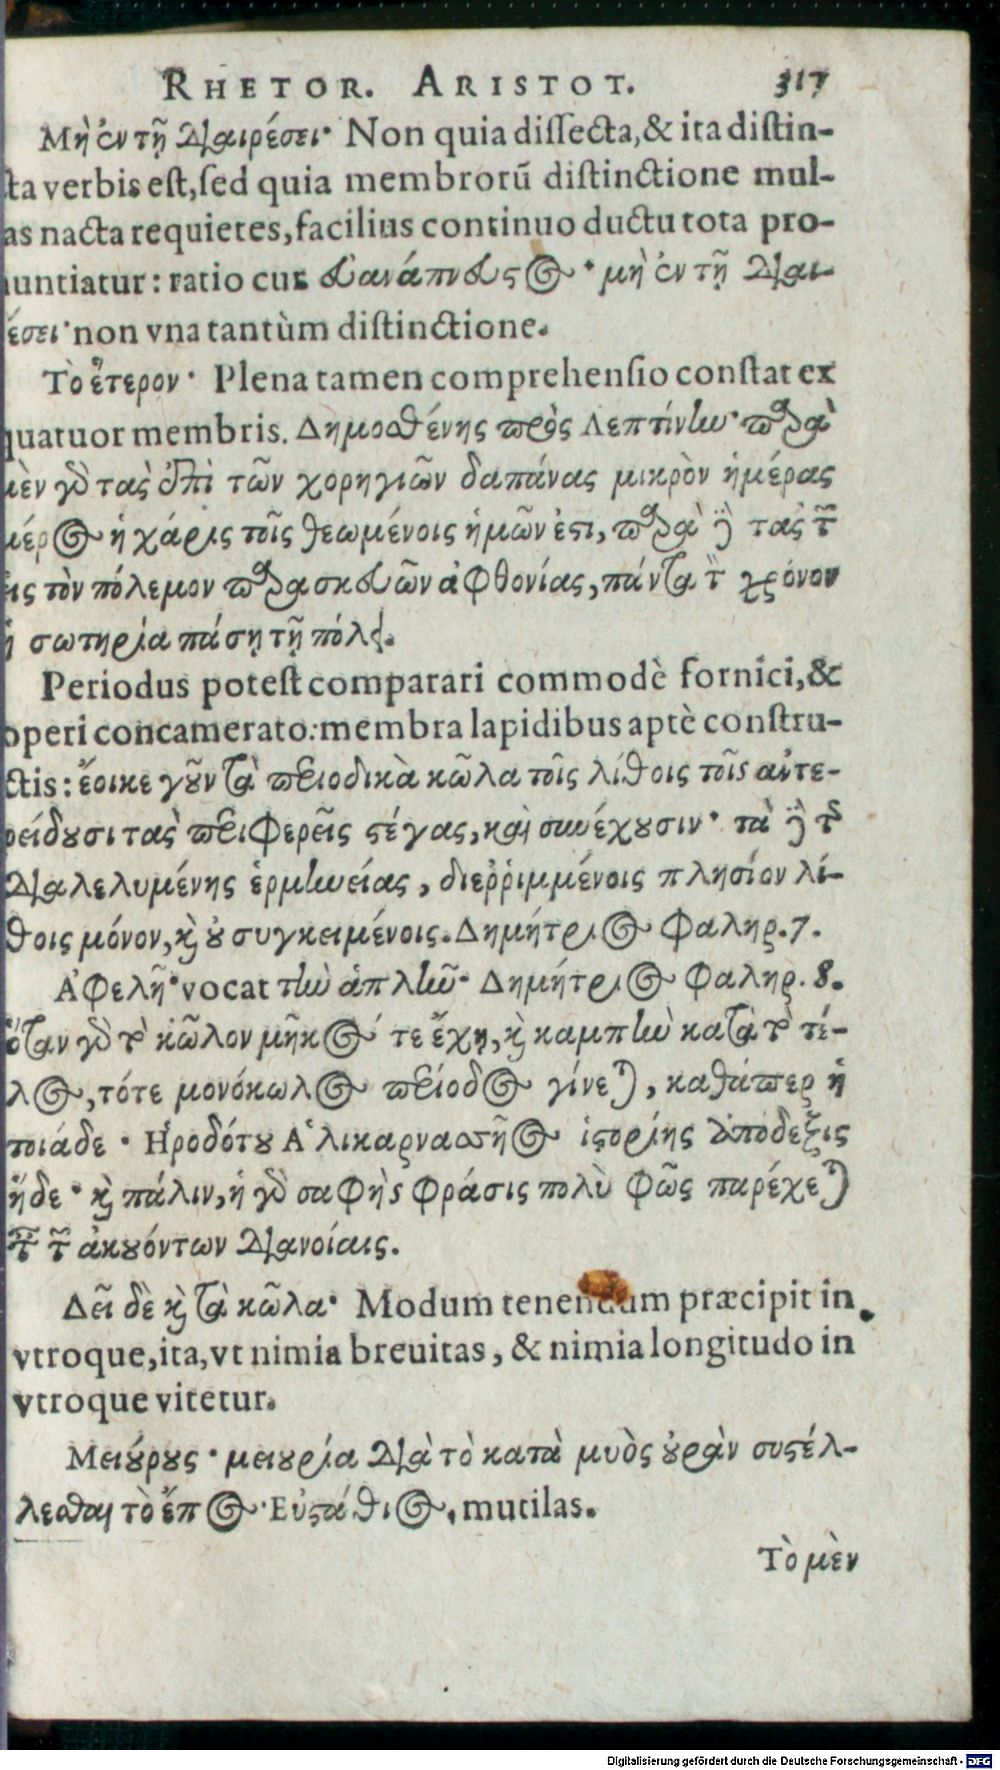 RHETOR. ARISTOT. 317
Μὴ ἐν τῇ διαιρέσει· Non quia dissecta, & ita distin-
cta verbis est, sed quia membrorū distinctione mul-
as nacta requietes, facilius continuo ductu tota pro-
nuntiatur: ratio cur εὐανάπνευστος· μὴ ἐν τῇ διαι-
έσει· non vna tantùm distinctione.
Τὸ ἕτερον· Plena tamen comprehensio constat ex
quatuor membris. Δημοσθένης πρὸς Λεπτίνην· παρὰ
μὲν γὸ τὰς ἐπὶ τῶν χορηγιῶν δαπάνας μικρὸν ἡμέρας
μέρος ἡ χάρις τοῖς θεωμένοις ἡμῶν ἐστι, παρὰ δὲ τὰς τῶν
εἰς τὸν πόλεμον παρασκευῶν ἀφθονίας, πάντα τὸν χρόνον
ἡ σωτηρία πάσῃ τῇ πόλει.
Periodus potest comparari commodè fornici, &
operi concamerato: membra lapidibus aptè constru-
ctis: ἔοικε γοῦν τὰ περιοδικὰ κῶλα τοῖς λίθοις τοῖς ἀντε-
ρείδουσι τὰς περιφερεῖς στέγας, καὶ συνέχουσιν· τὰ δὲ τῆς
διαλελυμένης ἑρμηνείας, διεῤῥιμμένοις πλησίον λί-
θοις μόνον, καὶ οὐ συγκειμένοις. Δημήτριος Φαληρ. 7.
Ἀφελῆ· vocat τὴν ἁπλῆν· Δημήτριος Φαληρ. 8.
ὅταν γὸ τὸ κῶλον μῆκός τε ἔχῃ, καὶ καμπὴν κατὰ τὸ τέ-
λος, τότε μονόκωλος περίοδος γίνεται, καθάπερ ἡ
τοιάδε· Ἡροδότου Ἁλικαρνασσῆος ἱστορίης ἀπόδεξις
ἥδε· καὶ πάλιν, ἡ γὸ σαφὴς φράσις πολὺ φῶς παρέχεται
ταῖς τῶν ἀκουόντων διανοίαις.
Δεῖ δὲ καὶ τὰ κῶλα· Modum tenendum præcipit in
vtroque, ita, vt nimia breuitas, & nimia longitudo in
vtroque vitetur.
Μειούρους· μειουρία διὰ τὸ κατὰ μυὸς οὐρὰν συστέλ-
λεσθαι τὸ ἔπος· Εὐστάθιος, mutilas.
Τὸ μὲν
Digitalisierung gefördert durch die Deutsche Forschungsgemeinschaft - DFG